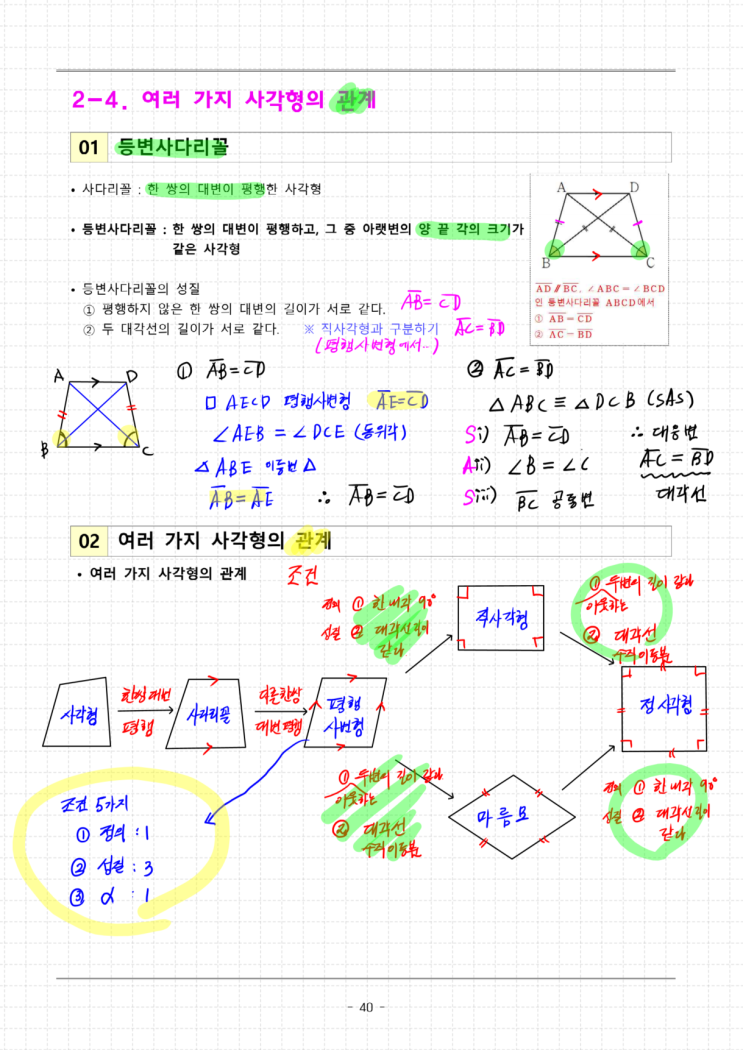 2-4. 여러 가지 사각형의 관계
01 등변사다리꼴
• 사다리꼴 : 한 쌍의 대변이 평행한 사각형
• 등변사다리꼴 : 한 쌍의 대변이 평행하고, 그 중 아랫변의 양 끝 각의 크기가
같은 사각형
• 등변사다리꼴의 성질
① 평행하지 않은 한 쌍의 대변의 길이가 서로 같다. AB = CD
② 두 대각선의 길이가 서로 같다. ※ 직사각형과 구분하기 AC = BD
(평행사변형에서..)
A D
B C
AD ∥ BC, ∠ABC = ∠BCD
인 등변사다리꼴 ABCD에서
① AB = CD
② AC = BD
A D
B C
① AB = CD
□ AECD 평행사변형 AE = CD
∠AEB = ∠DCE (동위각)
△ABE 이등변△
AB = AE ∴ AB = CD
② AC = BD
△ABC ≡ △DCB (SAS)
S i) AB = CD ∴ 대응변
A ii) ∠B = ∠C AC = BD
S iii) BC 공통변 대각선
02 여러 가지 사각형의 관계
• 여러 가지 사각형의 관계 조건
정의 ① 한 내각 90°
성질 ② 대각선 길이
같다
직사각형
① 두변의 길이 같다
이웃하는
② 대각선
수직이등분
사각형
한쌍 대변
평행
사다리꼴
다른한쌍
대변 평행
평행
사변형
정사각형
① 두변의 길이 같다
이웃하는
② 대각선
수직이등분
마름모
정의 ① 한 내각 90°
성질 ② 대각선 길이
같다
조건 5가지
① 정의 : 1
② 성질 : 3
③ α : 1
- 40 -